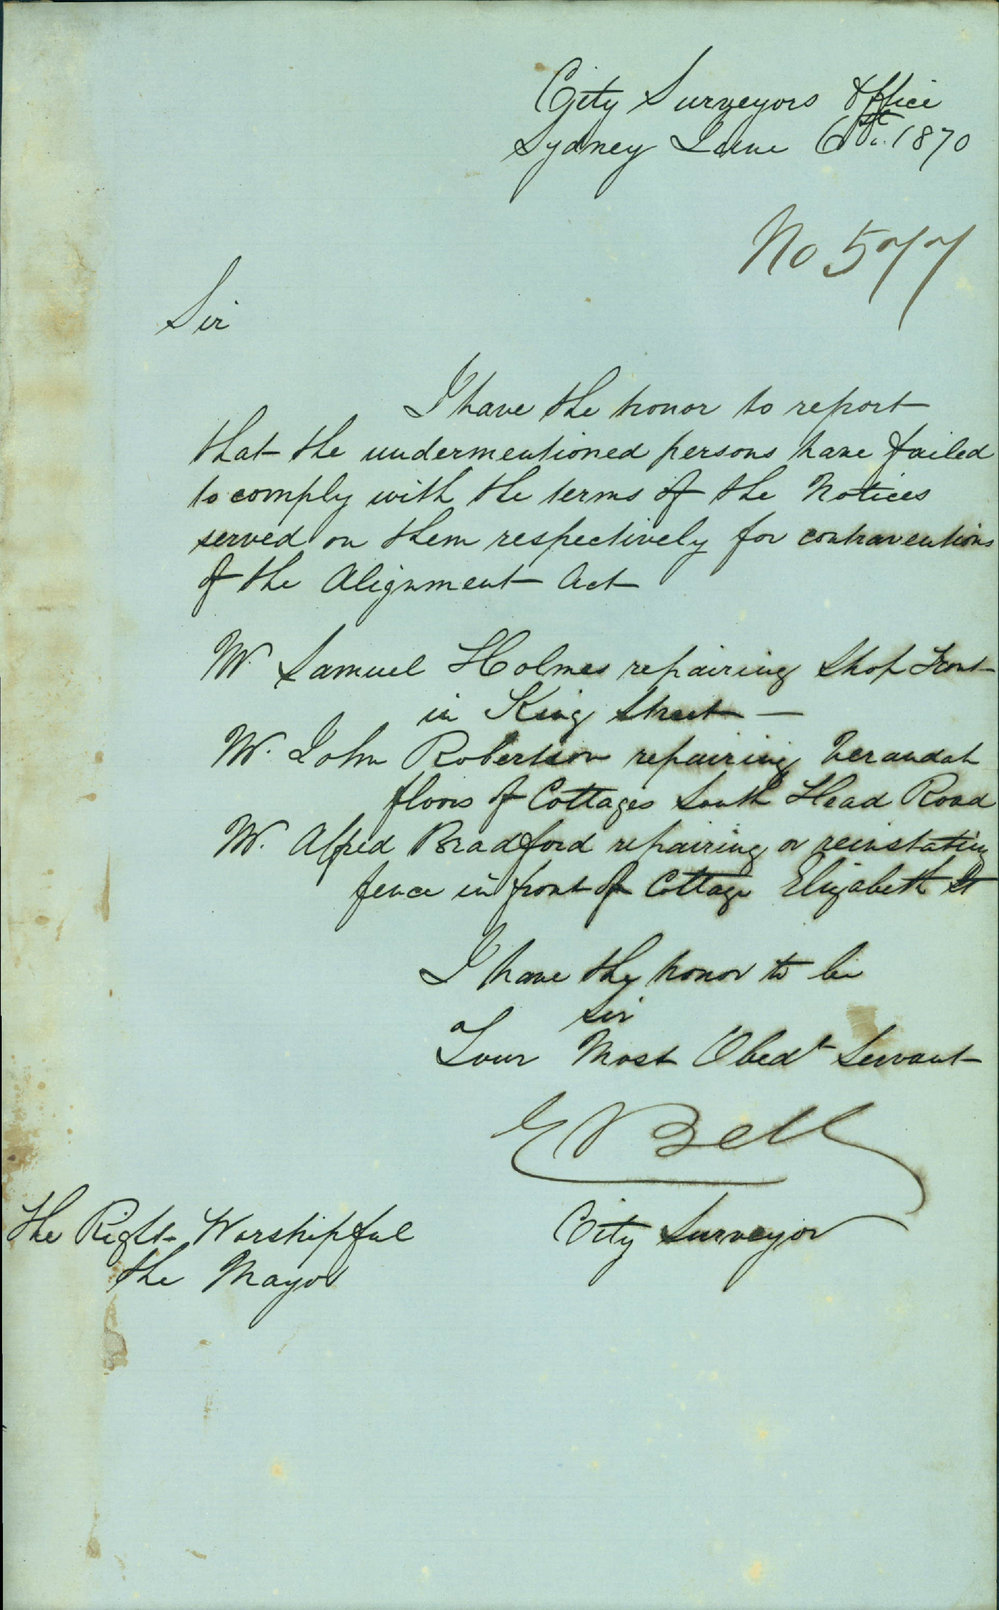 City Surveyors Office
Sydney June 6th. 1870
No 577
Sir
I have the honor to report
that the undermentioned persons have failed
to comply with the terms of the Notices
served on them respectively for contraventions
of the Alignment Act
Mr. Samuel Holmes repairing Shop Front
in King Street —
Mr. John Robertson repairing Verandah
floors of Cottages South Head Road
Mr. Alfred Bradford repairing or reinstating
fence in front of Cottage Elizabeth St
I have the honor to be
Sir
Your Most Obedt Servant
E Bell
City Surveyor
The Right Worshipful
the Mayor